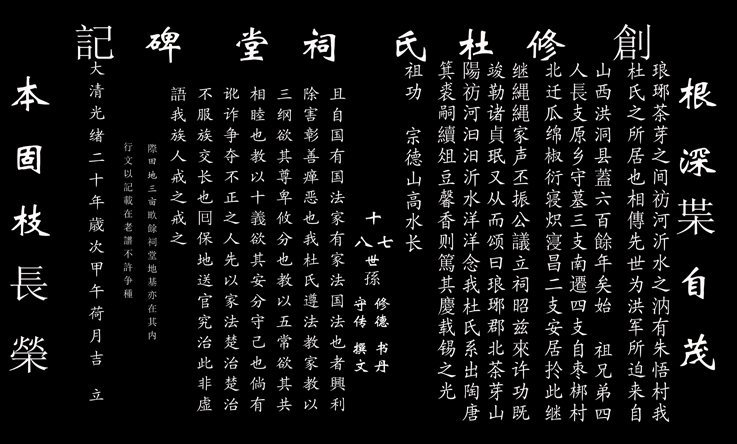 創修杜氏祠堂碑記
根深葉自茂
琅琊茶芽之间祊河沂水之汭有朱悟村我
杜氏之所居也相傳先世为洪军所迫来自
山西洪洞县蓋六百餘年矣始 祖兄弟四
人長支原乡守墓三支南遷四支自枣梆村
北迁瓜绵椒衍寝炽寖昌二支安居扵此继
继绳绳家声丕振公議立祠昭兹來许功既
竣勒诸貞珉又从而颂曰琅琊郡北茶芽山
陽祊河汩汩沂水洋洋念我杜氏系出陶唐
箕裘嗣續俎豆馨香则篤其慶载锡之光
祖功 宗德山高水长
十七
十八
世孫
修德 书丹
守传 撰文
且自国有国法家有家法国法也者興利
除害彰善癉惡也我杜氏遵法教家教以
三纲欲其尊卑攸分也教以五常欲其共
相睦也教以十義欲其安分守己也倘有
讹诈争夺不正之人先以家法楚治楚治
不服族交长也囘保地送官究治此非虚
語我族人戒之戒之
際田地三亩畝餘祠堂地基亦在其内
行文以記載在老譜不許争種
大清光绪二十年歲次甲午荷月吉 立
本固枝長榮